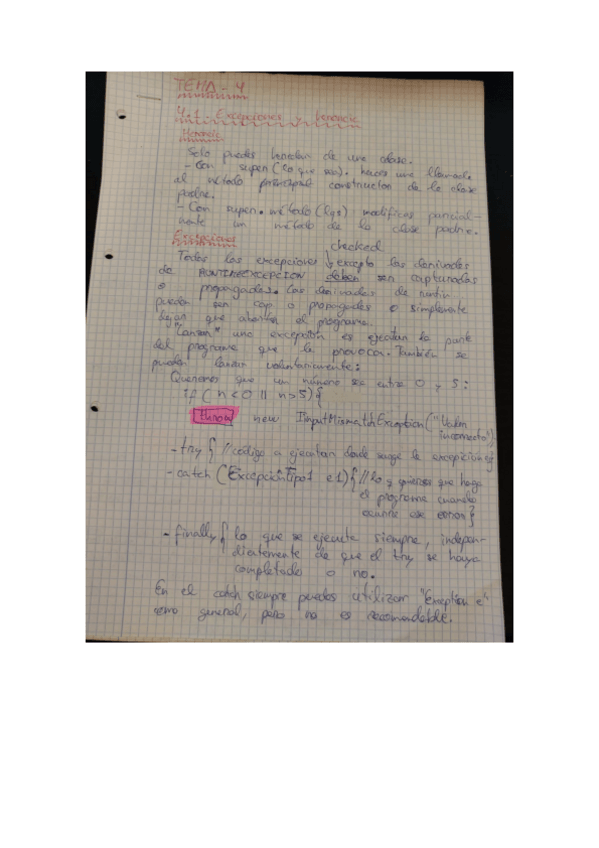 TEMA - 4
4.1. Excepciones y herencia
Herencia
Solo puedes heredar de una clase.
- Con super(lo que sea). haces una llamada
al método principal constructor de la clase
padre.
- Con super.método(lqs) modificas parcial-
mente un método de la clase padre.
Excepciones
checked
Todas las excepciones excepto las derivadas
de RUNTIMEEXCEPCION deben ser capturadas
o propagadas. Las derivadas de runtim
pueden ser cap o propagadas o simplemente
dejar que aborten el programa.
"Lanzar" una excepción es ejecutar la parte
del programa que la provoca. También se
pueden lanzar voluntariamente:
Queremos que un número sea entre 0 y 5:
if (n<0 || n>5){
throw new InputMismatchException("Valor
incorrecto")
- try { // código a ejecutar donde surge la excepcion}
- catch (ExcepciónTipo1 e1){ // lo q quieras que haga
el programa cuando
ocurre ese error}
- finally{ lo que se ejecuta siempre, indepen-
dientemente de que el try se haya
completado o no.
En el catch siempre puedes utilizar "Exception e"
como general, pero no es recomendable.